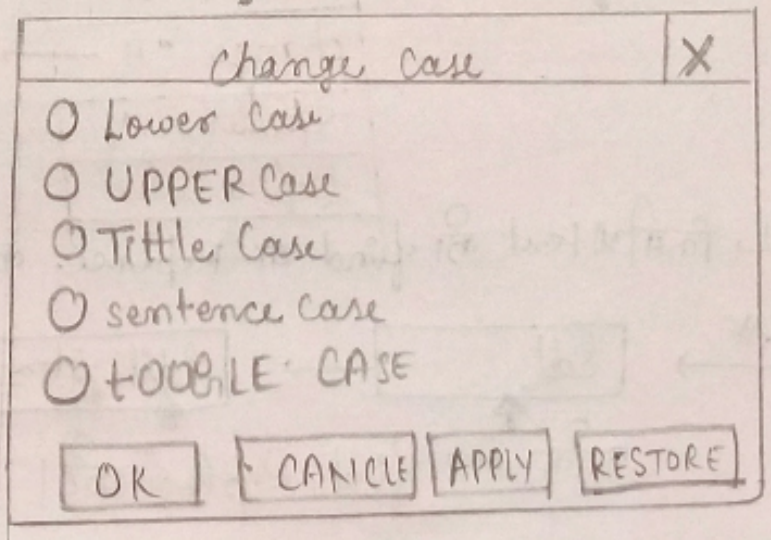 Change Case X
Lower Case
UPPER Case
Tittle Case
sentence case
tOOGLE CASE
OK CANCLE APPLY RESTORE